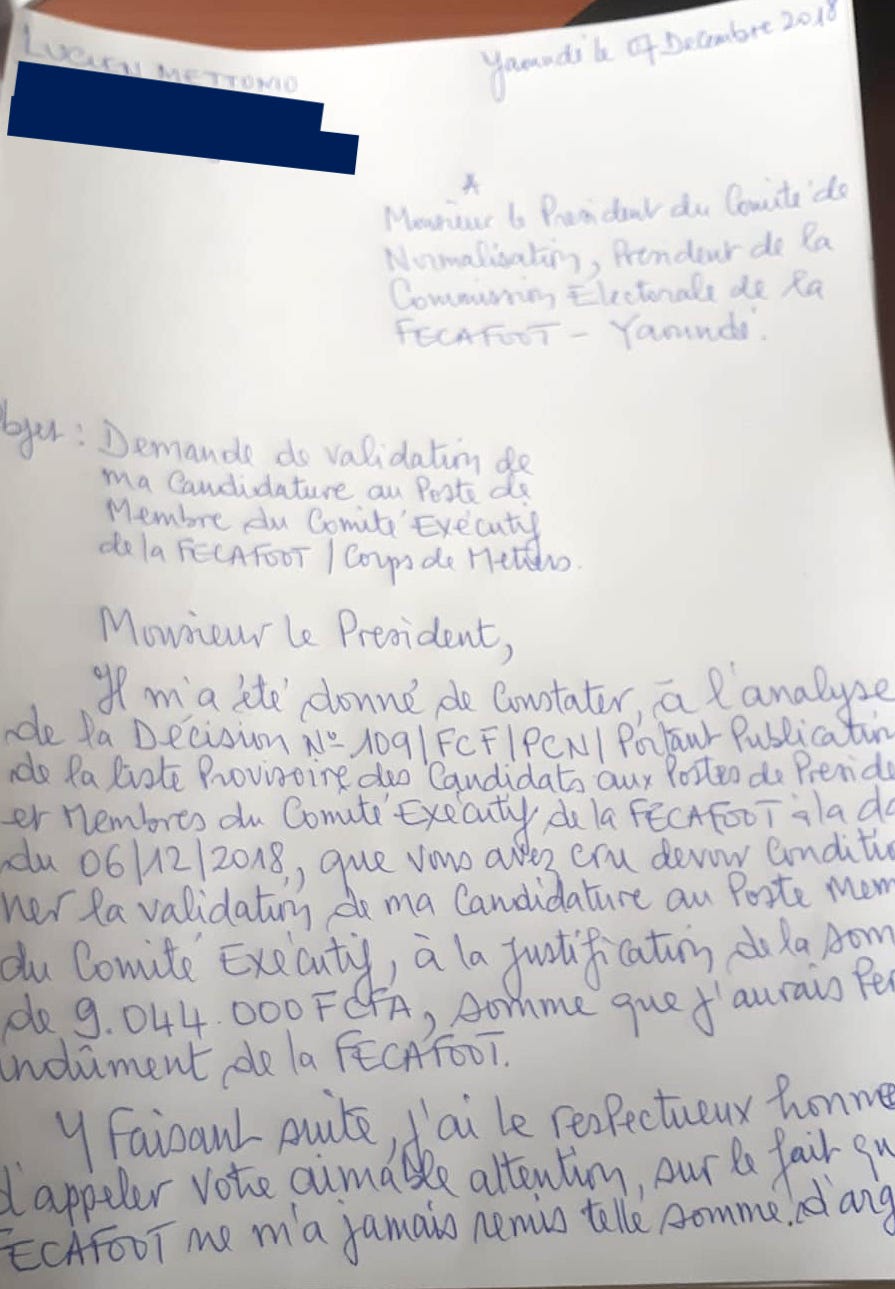 LUCIEN METTOMO
Yaoundé le 07 Decembre 2018
A
Monsieur le President du Comité de
Normalisation, President de la
Commission Electorale de la
FECAFOOT - Yaoundé.
objet : Demande de validation de
ma Candidature au Poste de
Membre du Comité Exécutif
de la FECAFOOT / Corps de Metiers.
Monsieur le President,
Il m'a été donné de Constater, à l'analyse
de la Décision N° 109/FCF/PCN/ Portant Publication
de la liste Provisoire des Candidats aux Postes de Preside
et Membres du Comité Exécutif de la FECAFOOT à la da
du 06/12/2018, que vous avez cru devoir Conditio
ner la validation de ma Candidature au Poste Mem
du Comité Exécutif, à la justification de la som
de 9.044.000 FCFA, somme que j'aurais Per
indûment de la FECAFOOT.
Y Faisant suite, j'ai le respectueux honne
d'appeler votre aimable attention, sur le fait qu
FECAFOOT ne m'a jamais remis telle somme d'arg